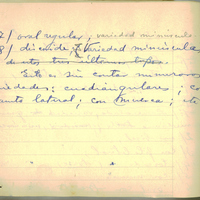 7/ oval regular, variedad minúscula
8/ discoide, variedad minúscula
de estos tres últimos tipos.
Esto es sin contar numerosas
riedades: cuadrangulares; co
lateral; con muesca; et